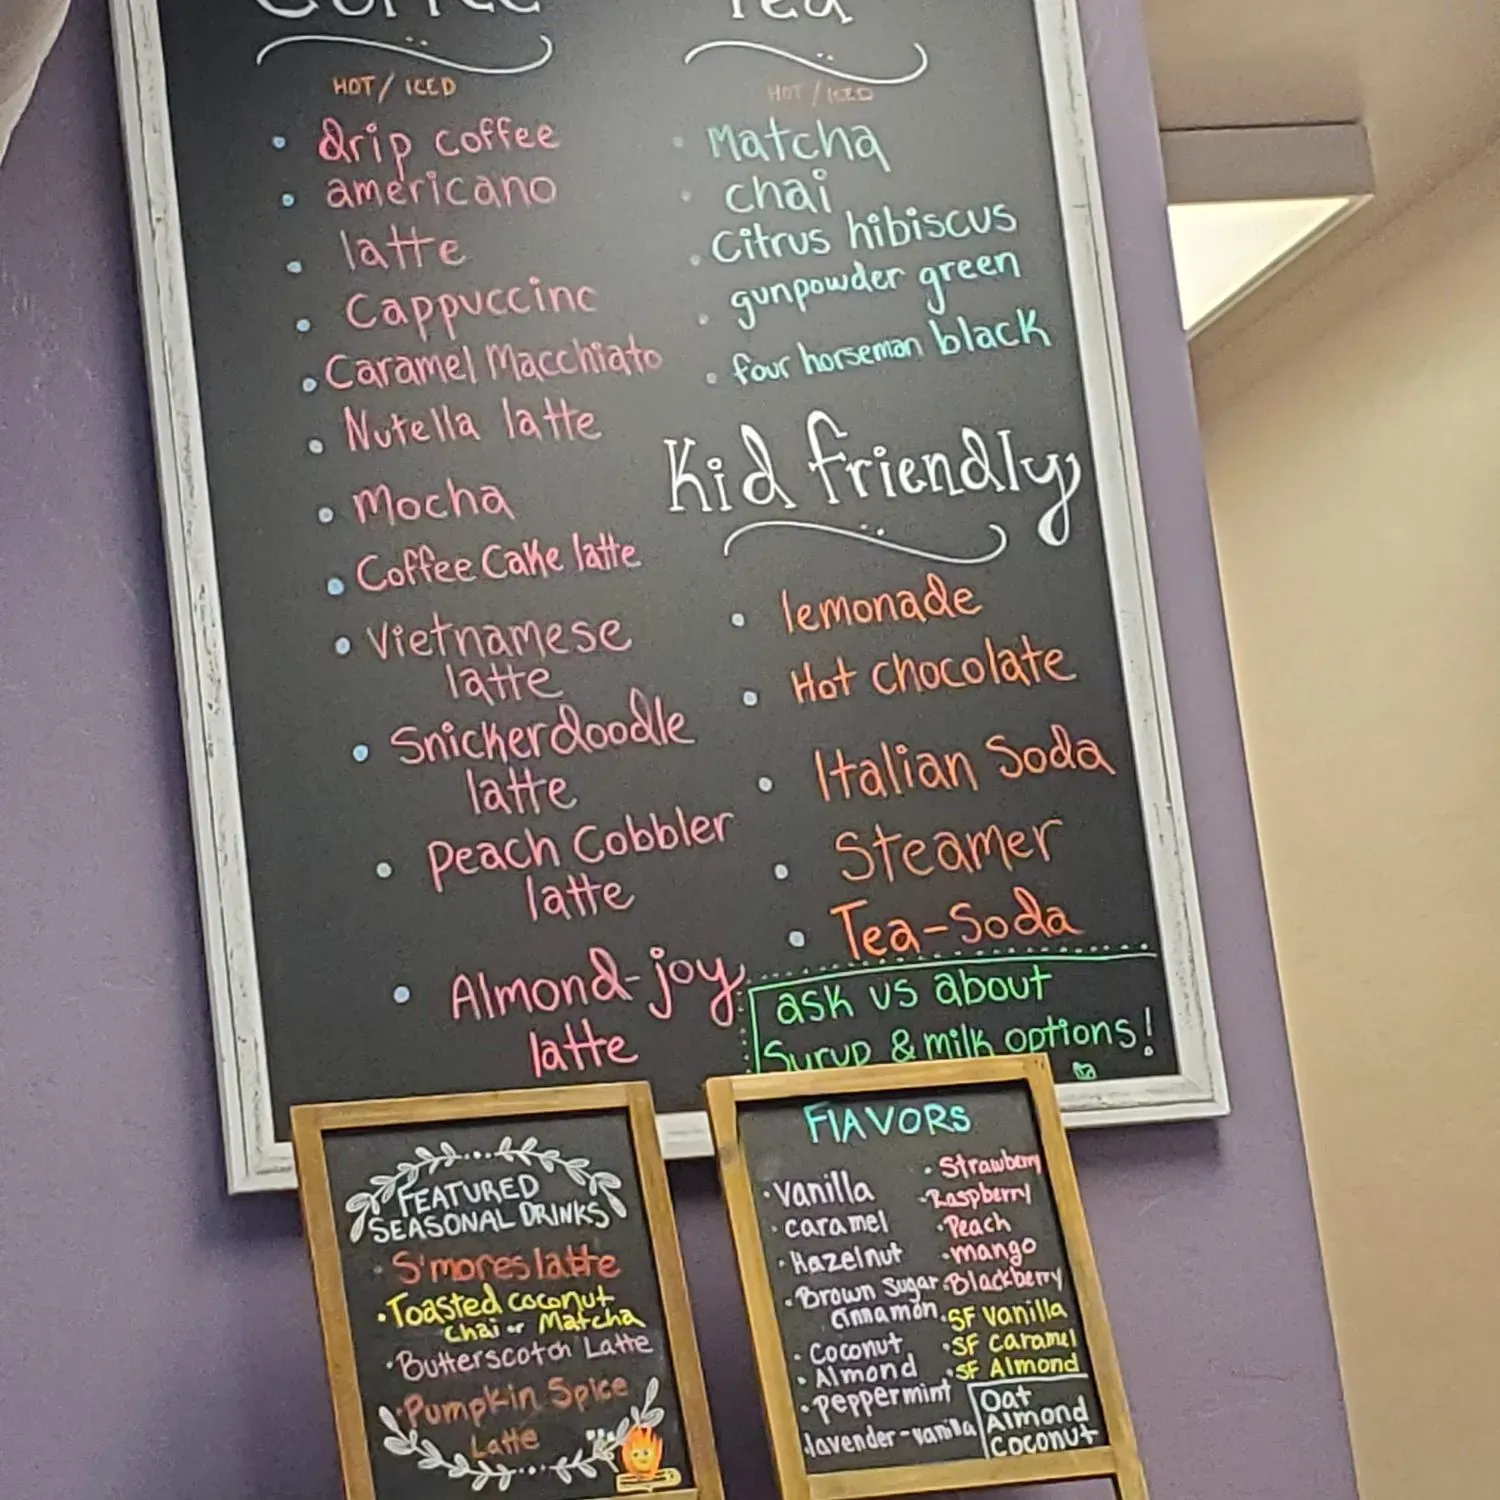 Coffee
HOT / ICED
drip coffee
americano
latte
Cappuccino
Caramel Macchiato
Nutella latte
Mocha
Coffee Cake latte
Vietnamese
latte
Snickerdoodle
latte
Peach Cobbler
latte
Almond-joy
latte
Tea
HOT / ICED
Matcha
chai
Citrus hibiscus
gunpowder green
four horseman black
Kid friendly
lemonade
Hot chocolate
Italian Soda
Steamer
Tea-Soda
ask us about
Syrup & milk options!
FEATURED
SEASONAL DRINKS
S'mores latte
Toasted coconut
chai or Matcha
Butterscotch Latte
Pumpkin Spice
Latte
FlAVORS
Vanilla
caramel
Hazelnut
Brown Sugar
Cinnamon
Coconut
Almond
Peppermint
lavender-vanilla
Strawberry
Raspberry
Peach
mango
Blackberry
SF Vanilla
SF Caramel
SF Almond
Oat
Almond
Coconut